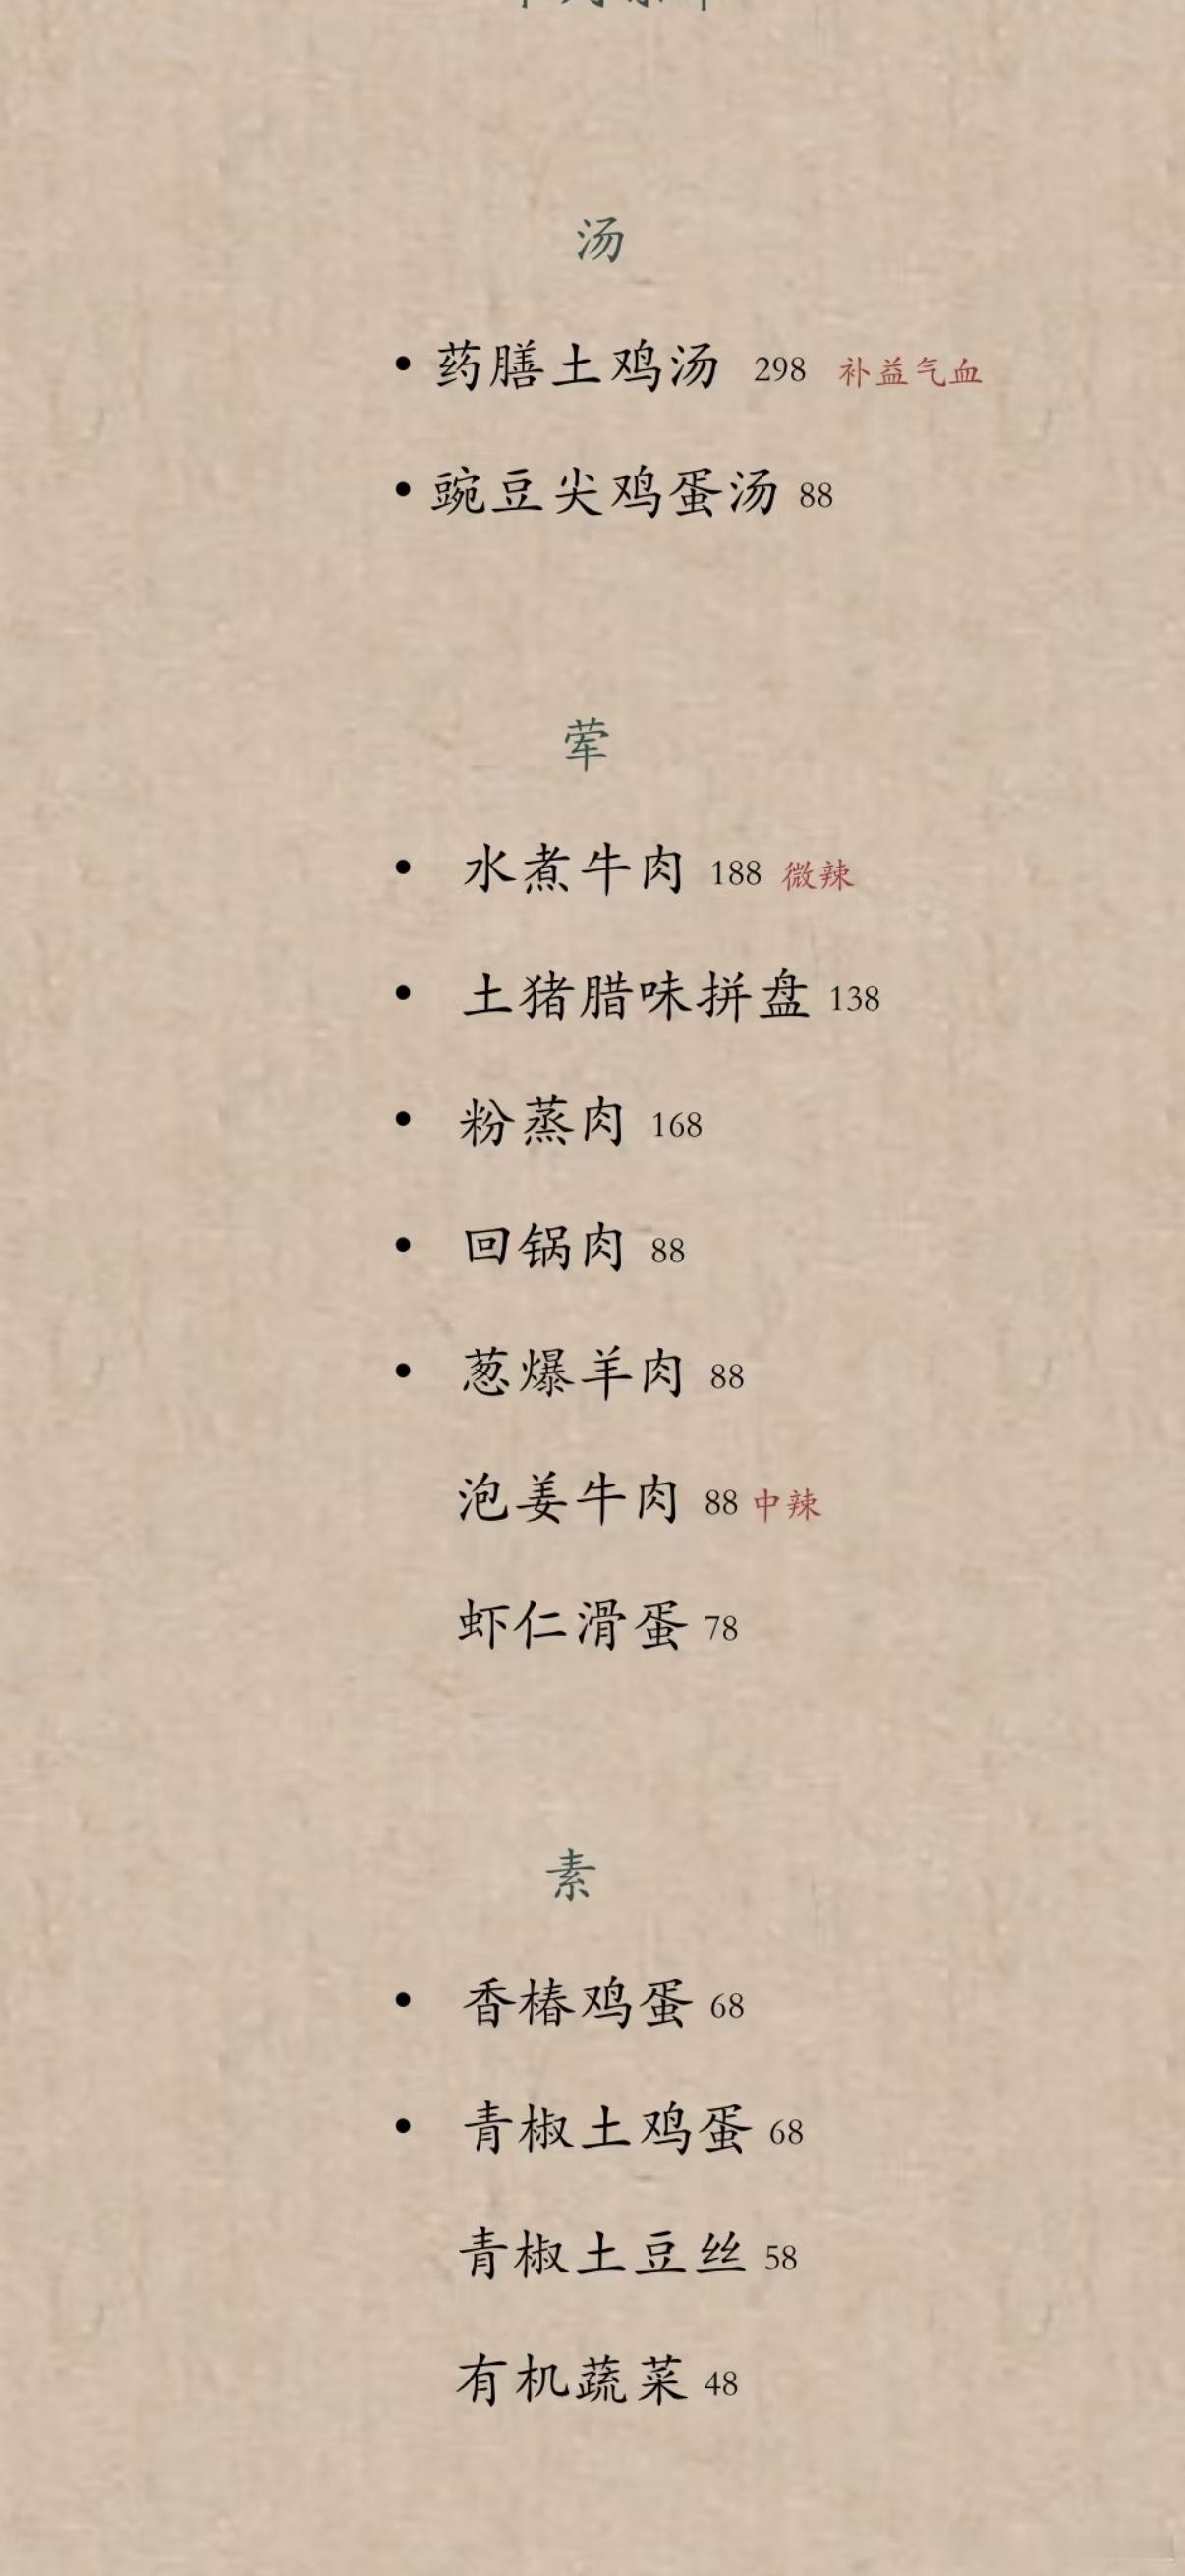 汤
• 药膳土鸡汤 298 补益气血
• 豌豆尖鸡蛋汤 88
荤
• 水煮牛肉 188 微辣
• 土猪腊味拼盘 138
• 粉蒸肉 168
• 回锅肉 88
• 葱爆羊肉 88
泡姜牛肉 88 中辣
虾仁滑蛋 78
素
• 香椿鸡蛋 68
• 青椒土鸡蛋 68
青椒土豆丝 58
有机蔬菜 48